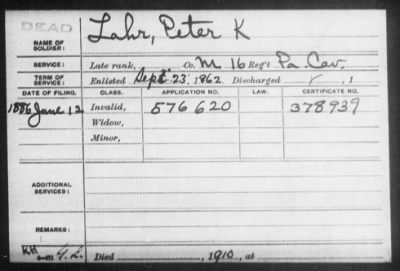 DEAD
NAME OF SOLDIER: Lahr, Peter K
SERVICE: Late rank, Co. M 16 Reg't Pa. Cav.
TERM OF SERVICE: Enlisted Sept. 23, 1862 Discharged , 1
DATE OF FILING. CLASS. APPLICATION NO. LAW. CERTIFICATE NO.
1886 June 12 Invalid, 576620 378939
Widow,
Minor,
ADDITIONAL SERVICES:
REMARKS:
Died , 1910, at